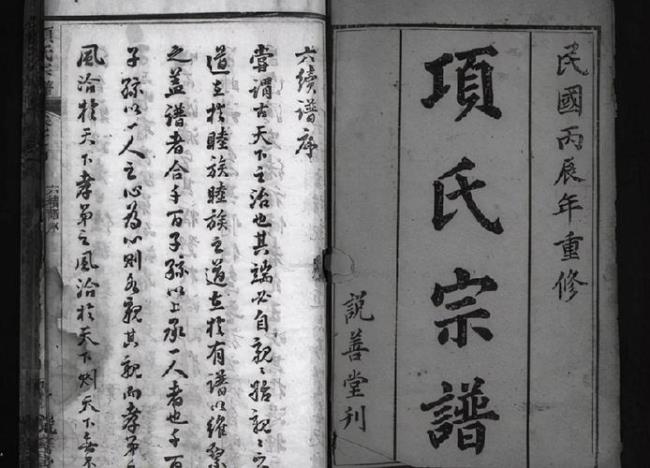 民國丙辰年重修
項氏宗譜
説善堂刊
六續譜序
嘗謂古天下之治也其端必自親〻始親〻之
道立於睦族睦族之道立於有譜以維繫
之蓋譜者合千百子孫以上承一人者也千百
子孫以一人之心為心則各親其親而孝弟之
風洽於天下孝弟之風洽於天下則天下無不
項氏宗譜
六續譜序